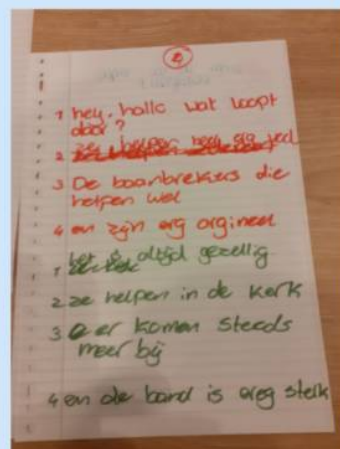 4
1 hey, hallo wat loopt
daar?
2 ze helpen heel erg veel
3 De baanbrekers die
helpen wel
4 en zijn erg orgineel
1 het is altijd gezellig
2 ze helpen in de kerk
3 er komen steeds
meer bij
4 en de band is erg sterk